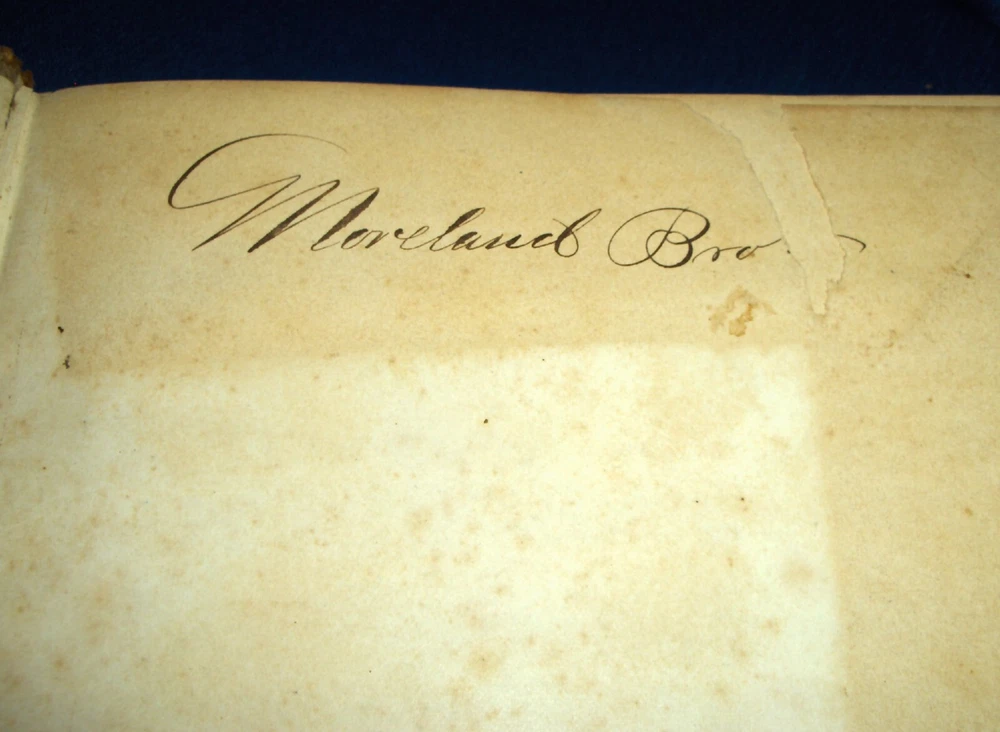 Moreland Bro